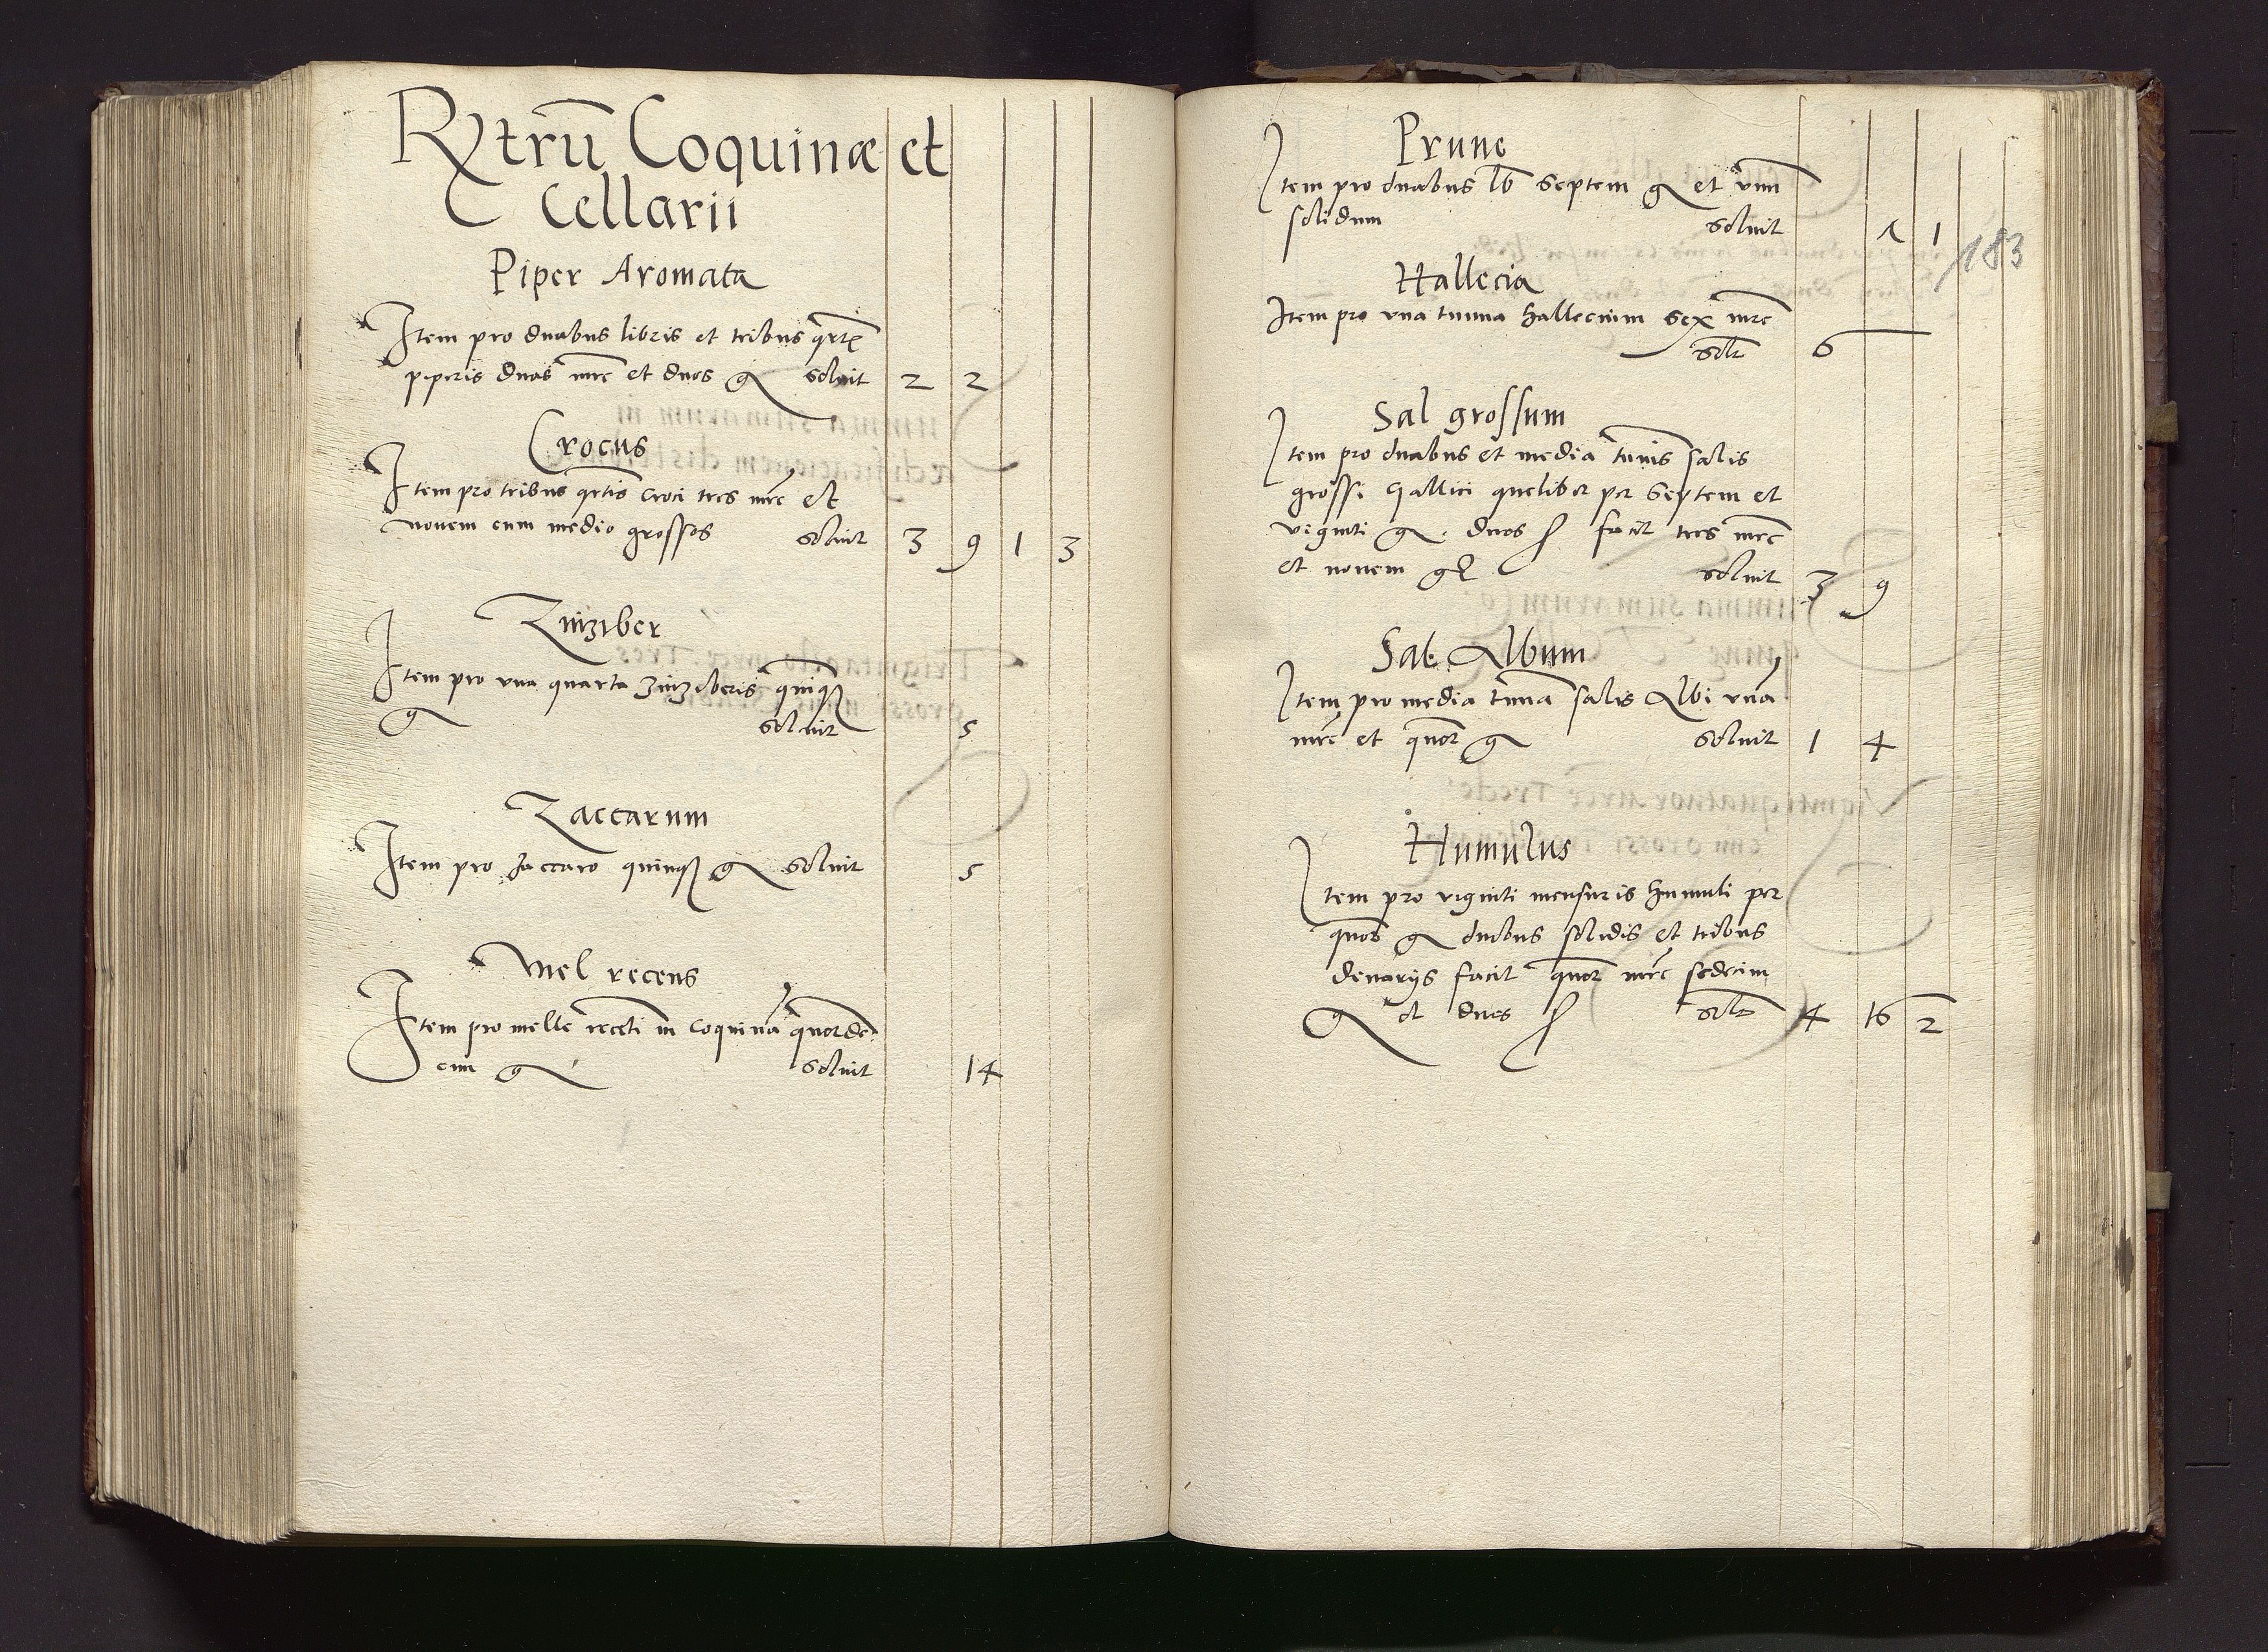 Rtrū Coquinæ et
Cellarii
Piper Aromata
Item pro duabus libris et tribus qrt
piperis duas mrc et duos g soluit 2 2
Crocus
Item pro tribus qrtis croci tres mrc et
nouem cum medio grossos soluit 3 9 1 3
Zinziber
Item pro una quarta zinziberis quinq
g soluit 5
Zaccarum
Item pro zaccaro quinq g soluit 5
Mel recens
Item pro melle recēti in coquinā quatorde
cim g soluit 14
Prune
Item pro duabus lb septem g et vnū
solidum soluit 1
183
Hallecia
Item pro vna tunna hallecium sex mrc
solt 6
Sal grossum
Item pro duabus et media tunis salis
grossi gallici quelibet per septem et
viginti g. duos ß facit tres mrc
et nouem g soluit 3 9
Sal Album
Item pro media tūna salis Albi vnā
mrc et quor g soluit 1 4
Humulus
Item pro viginti mensuris humuli per
quos g duobus solidis et tribus
denarijs facit quor mrc sedecim
g et duos ß solt 4 16 2